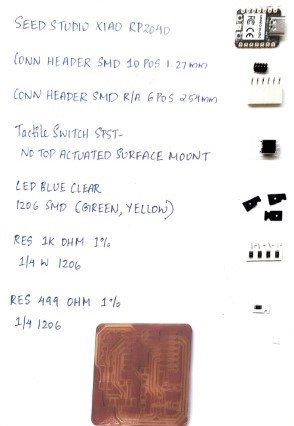 SEED STUDIO XIAO RP2040
CONN HEADER SMD 10 POS 1.27mm
CONN HEADER SMD R/A 6POS 254mm
Tactile SWITCH SPST-
NO TOP ACTUATED SURFACE MOUNT
LED BLUE CLEAR
1206 SMD (GREEN, YELLOW)
RES 1K OHM 1%
1/4 W 1206
RES 499 OHM 1%
1/4 1206